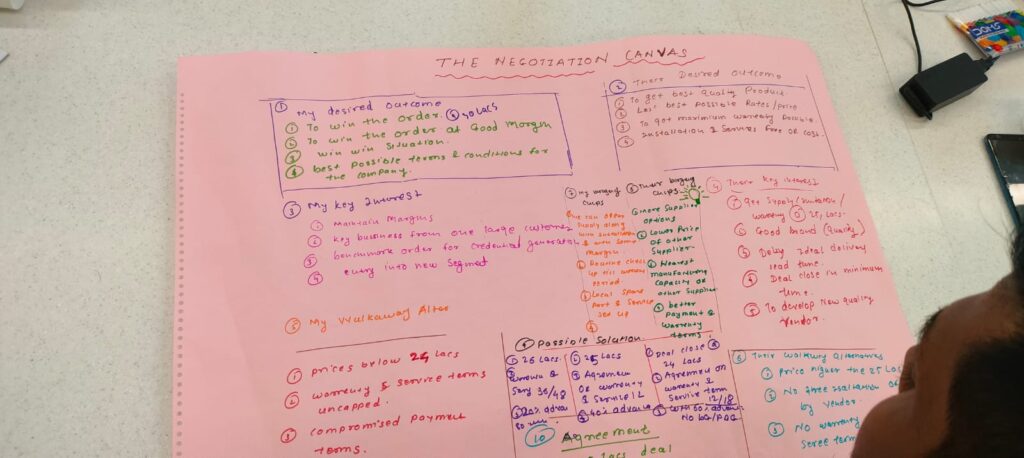 THE NEGOTIATION CANVAS
① My desired outcome
① To win the order. @ 30 Lacs
② To win the order at Good Margin
③ win win situation.
④ best possible terms & conditions for
the company.
② Their Desired outcome
① To get best quality Product.
② best possible Rates/price
③ To get maximum warranty possible.
④ Installation & Services free of cost.
③ My key Interest
① Maintain Margins
② key business from one large customer
③ benchmark order for credential generation
④ entry into new Segment
⑦ My bargaing
chips
supply along
with installation
& with some
margin.
② Routine check
up till warranty
period
③ Local Spare
Part & Service
set up
④
⑧ Their bargaing
chips.
① More Supplier
options
② Lower Price
of other
Supplier.
③ Nearest
manufacturing
capacity of
other Supplier
④ better
Payment &
warranty
terms
④ Their key interest
① get Supply/
warranty @ 25 Lacs.
② Good brand (quality)
③ delivery
lead time.
④ Deal close in minimum
time.
⑤ To develop New quality
Vendor.
⑤ My Walkaway Alter
① prices below 24 Lacs
② warranty & service terms
uncapped.
③ compromised payment
terms.
⑨ Possible Solution
① 26 Lacs.
36/48
③ 20% advan
② 25 Lacs
② Agreement
on warranty
& Service
③ 40% advance
① Deal close @
24 Lacs
② Agreement on
warranty &
Service term
12/18
③ with 60% advance
No BG/PBG
⑥ Their walkaway Alternatives
① Price higher the 25 Lacs
② No free of
by Vendor.
③ No warranty
terms
10 Agreement
Lacs deal